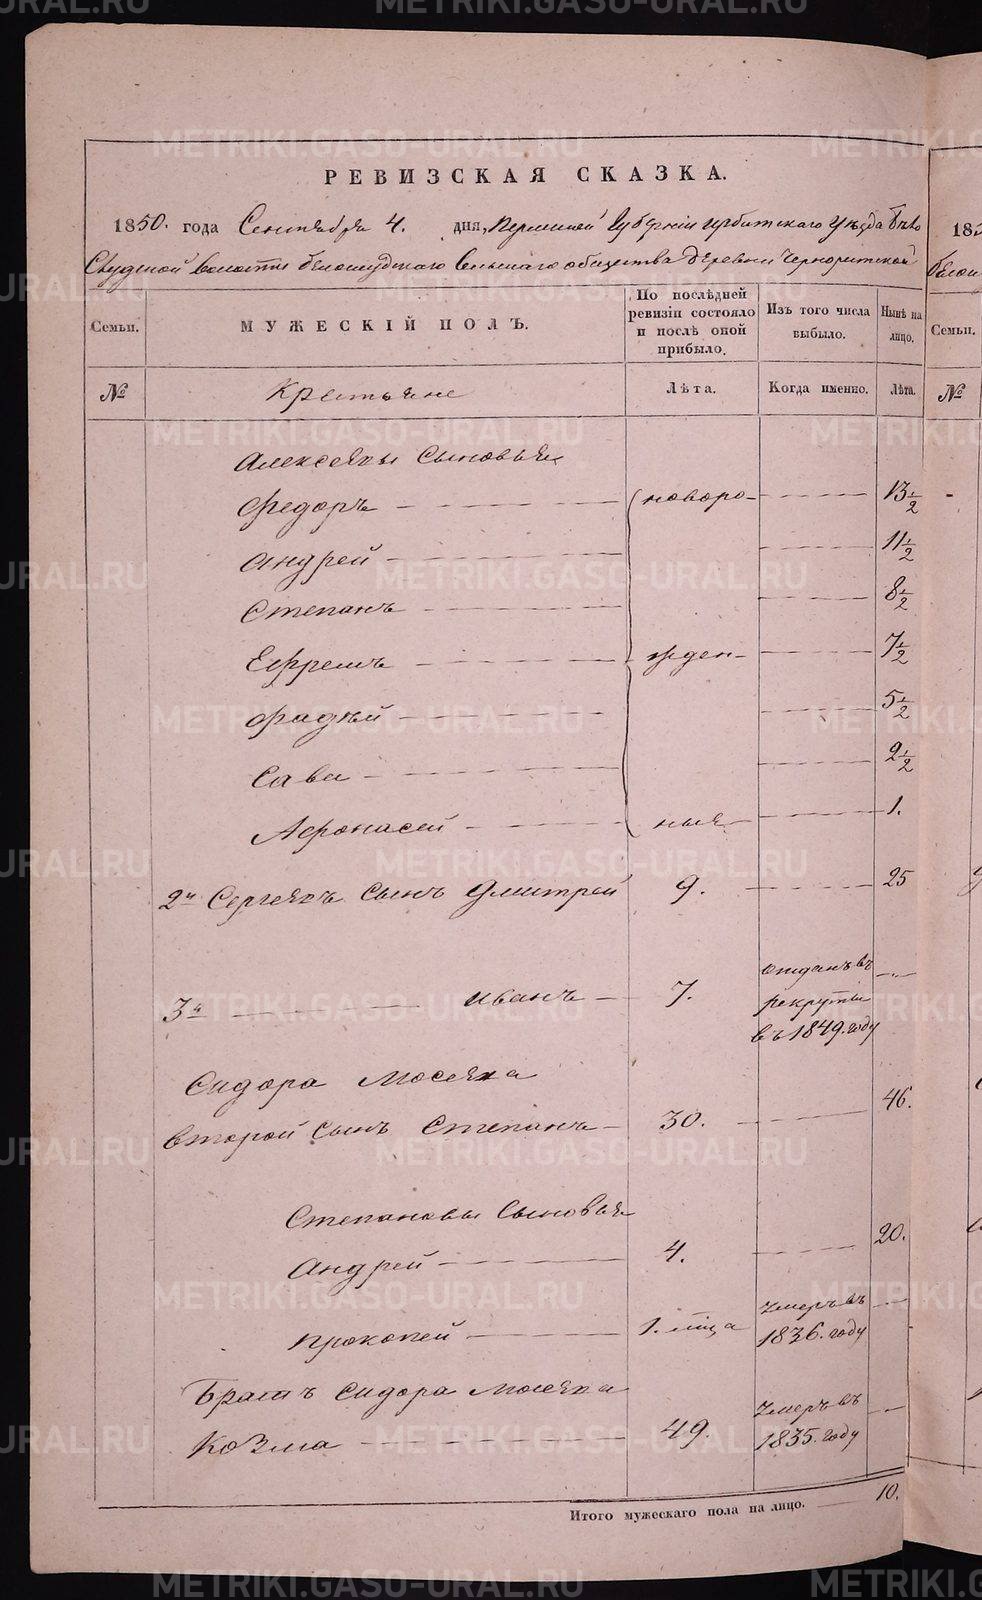 METRIKI.GASO-URAL.RU
РЕВИЗСКАЯ СКАЗКА.
1850. года Сентября 4. дня, Пермской Губерніи Ирбитскаго Уѣзда Бѣло
Слудской волости Белослудскаго Сельскаго общества деревни Чернорицкой
Семьи. МУЖЕСКІЙ ПОЛЪ. По послѣдней ревизіи состояло и послѣ оной прибыло. Изъ того числа выбыло. Нынѣ на лицо.
№ Крестьяне Лѣта. Когда именно. Лѣта.
Алексеявы Сыновья
Федоръ новоро- 13 1/2
Андрей 11 1/2
Степанъ 8 1/2
Ефремъ жден- 7 1/2
Фадѣй 5 1/2
Сава 2 1/2
Афонасей ные 1.
2й Сергеявъ Сынъ Дмитрей 9. 25
3й Иванъ 7. отданъ въ рекруты въ 1849. году
Сидора Мосеява
второй Сынъ Степанъ 30. 46.
Степановы Сыновья
Андрей 4. 20.
Прокопей 1. м͠ца умеръ въ 1836. году
Братъ Сидора Мосеява
Козма 49. умеръ въ 1835. году
Итого мужескаго пола на лицо. 10.
185
Семьи.
№